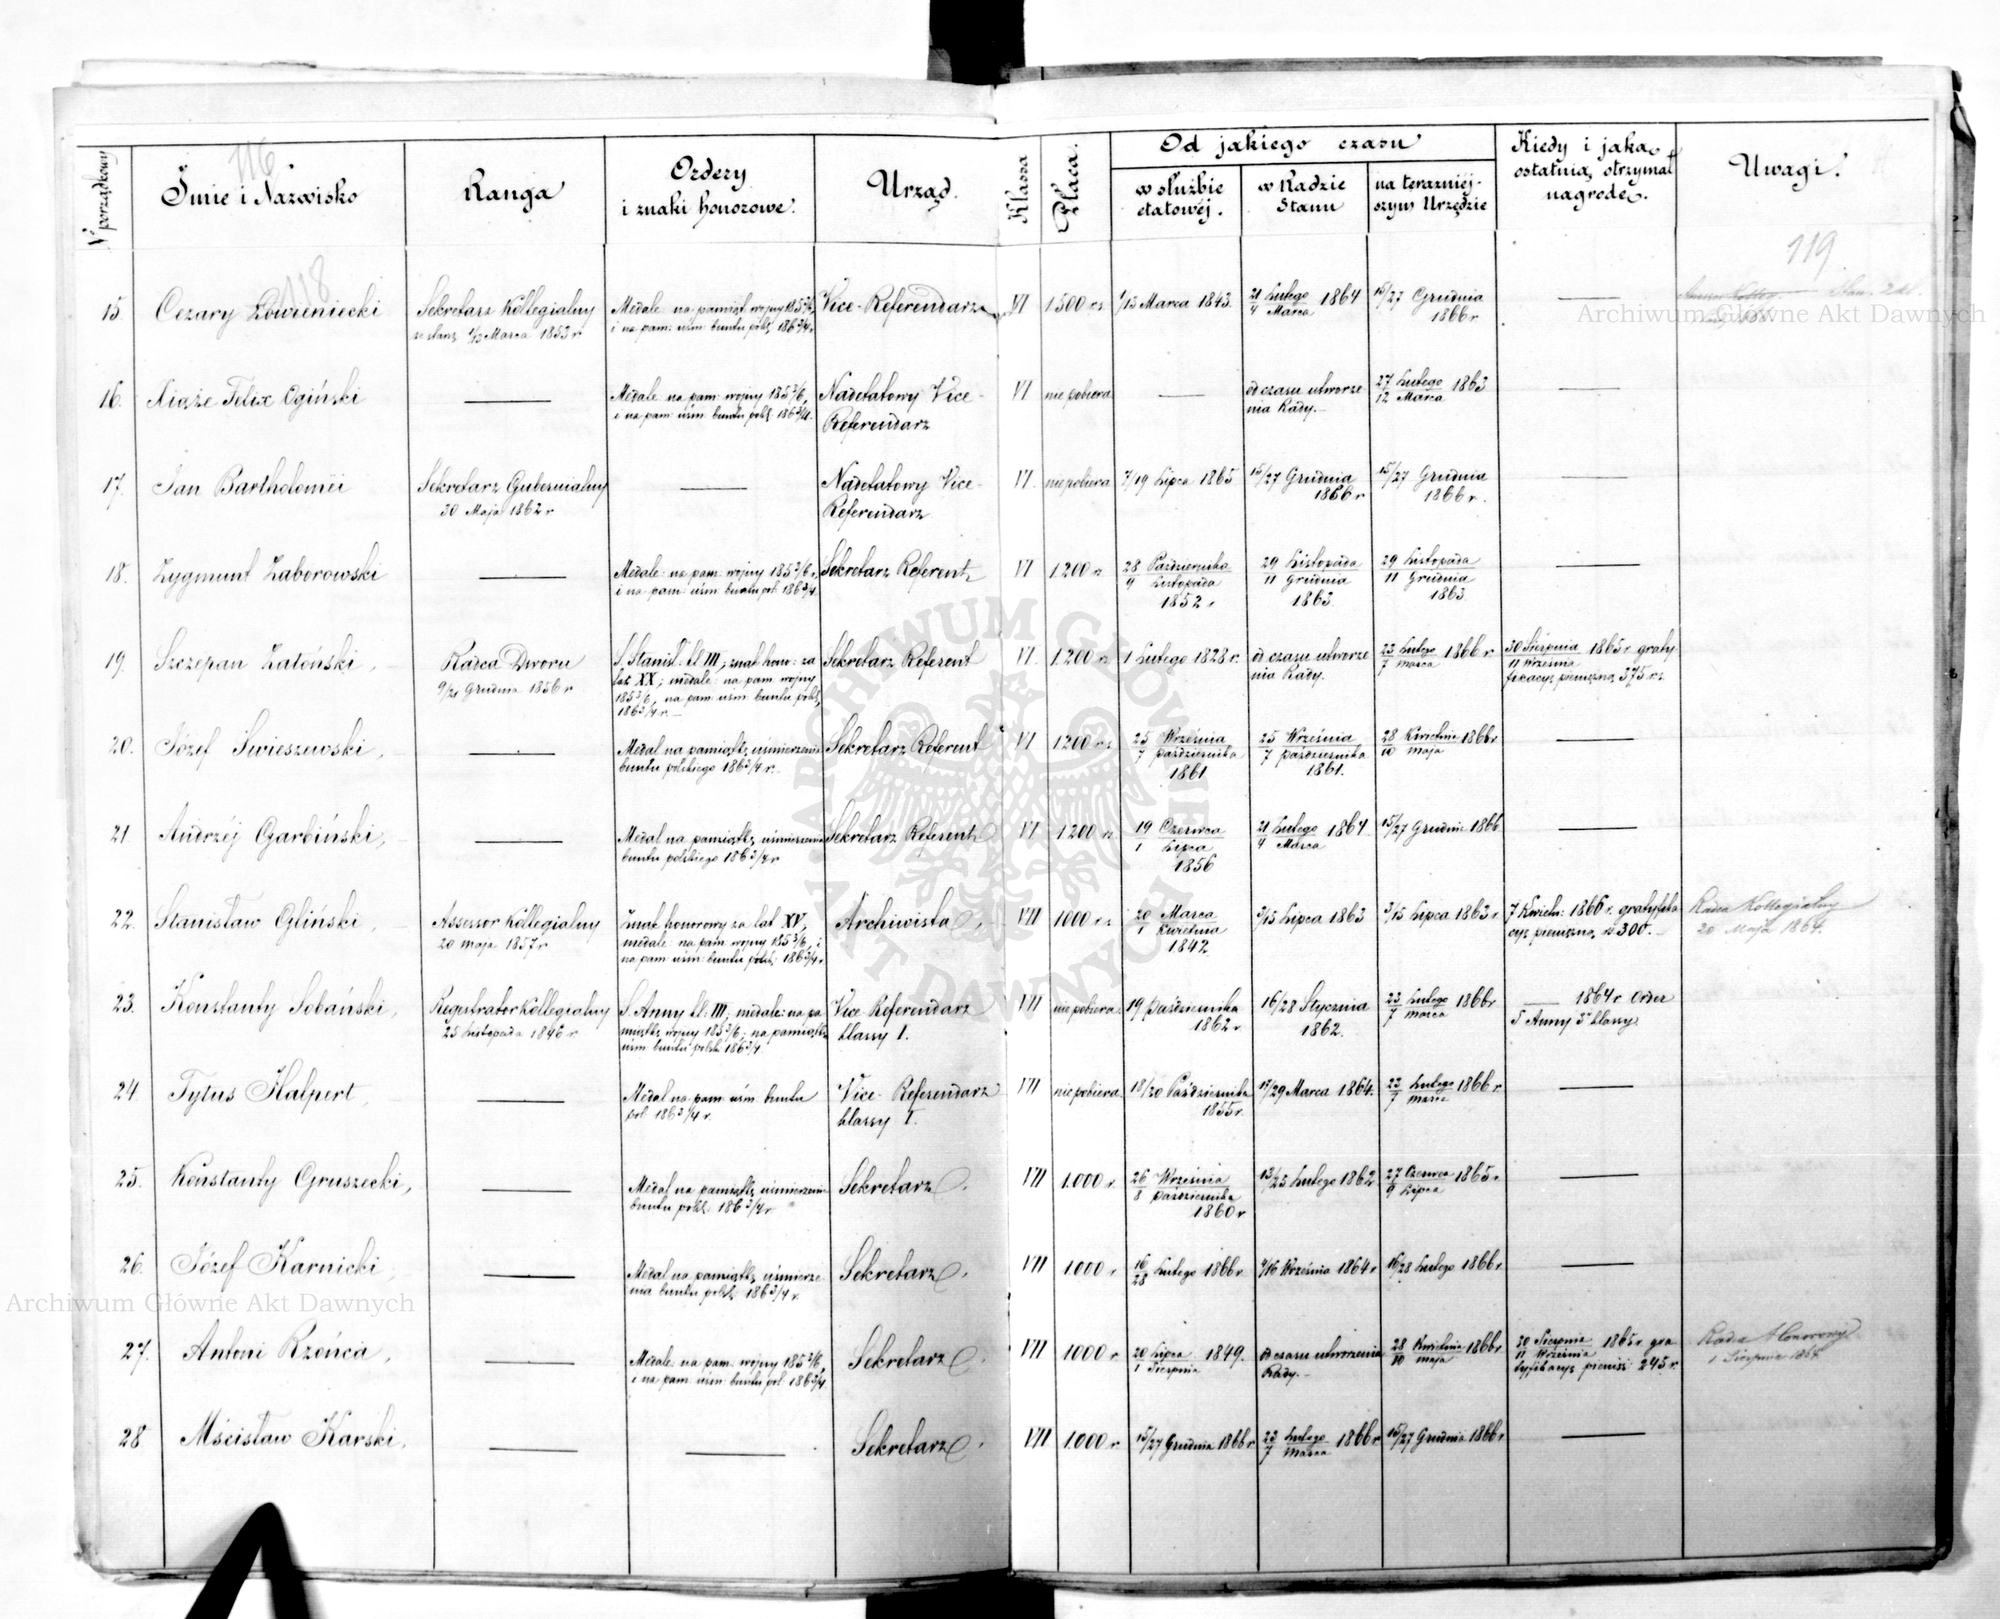 116
118
119
N porządkowy
Imie i Nazwisko
Ranga
Ordery
i znaki honorowe.
Urząd.
Klassa
Płaca.
Od jakiego czasu
w służbie
etatowéj.
w Radzie
Stanu
na teraźniéj-
szym Urzędzie
Kiedy i jaką
ostatnią otrzymał
nagrodę.
Uwagi.
15. Cezary Łowieniecki
Sekretarz Kollegialny
ze starsz. 1/13 Marca 1853 r
Medale: na pamiąt. wojny 1853/6,
i na pam: uśm: buntu polsk. 1863/4 r.
Vice-Referendarz
VI 1500 rs
1/13 Marca 1843.
21 Lutego 1864
4 Marca
15/27 Grudnia
1866 r.
16. Xiąże Felix Ogiński
Medale na pam: wojny 1853/6,
i na pam: uśm: buntu polsk. 1863/4.
Nadetatowy Vice-
Referendarz
VI nie pobiera
od czasu utworze
nia Rady.
27 Lutego 1863
12 Marca
17. Jan Bartholomëi
Sekretarz Gubernialny
30 Maja 1862 r
Nadetatowy Vice-
Referendarz
VI nie pobiera
7/19 Lipca 1865
15/27 Grudnia
1866 r
15/27 Grudnia
1866 r.
18. Zygmunt Zaborowski
Medale: na pam: wojny 1853/6 r,
i na pam: uśm: buntu pol. 1863/4.
Sekretarz Referent
VI 1200 rs
28 Października
9 Listopada
1852 r
29 Listopada
11 Grudnia
1863
29 Listopada
11 Grudnia
1863
19. Szczepan Zatoński
Radca Dworu
9/21 Grudnia 1856 r
S. Stanisł. kl III; znak hono: za
lat XX; medale: na pam: wojny
1853/6, na pam: uśm: buntu polsk,
1863/4 r.
Sekretarz Referent
VI 1200 rs
1 Lutego 1828 r.
od czasu utworze
nia Rady.
23 Lutego 1866 r
7 Marca
30 Sierpnia 1865 r graty
11 Września
fikacyą pieniężną 375 rs.
20. Józef Swieszewski,
Medal na pamiątkę uśmierzenia
buntu polskiego 1863/4 r.
Sekretarz Referent
VI 1200 rs
25 Września
7 Października
1861
25 Września
7 Października
1861.
28 Kwietnia 1866 r
10 Maja
21. Andrzéj Garbiński,
Medal na pamiątkę uśmierzenia
buntu polskiego 1863/4 r
Sekretarz Referent
VI 1200 rs
19 Czerwca
1 Lipca
1856
21 Lutego 1864
4 Marca
15/27 Grudnia 1866
22. Stanisław Gliński,
Assessor Kollegialny
20 maja 1857 r
Znak honorowy za lat XV,
medale na pam: wojny 1853/6, i
na pam: uśm: buntu polsk. 1863/4 r.
Archiwista,
VII 1000 rs
20 Marca
1 Kwietnia
1842
3/15 Lipca 1863
3/15 Lipca 1863 r.
7 Kwietn: 1866 r. gratyfika
cyą pieniężną rs 300.
Radca Kollegialny
20 Maja 1864.
23. Konstanty Sobański,
Registrator Kollegialny
25 Listopada 1846 r
S. Anny kl: III; medale: na pa
miątkę wojny 1853/6; na pamiątkę
uśm: buntu polsk 1863/4
Vice Referendarz
klassy I.
VII nie pobiera
19 Października
1862 r
16/28 Stycznia
1862.
23 Lutego 1866 r
7 Marca
1864 r. Order
S Anny 3ej klassy
24 Tytus Halpert,
Medal na pam: uśm: buntu
pol: 1863/4 r.
Vice-Referendarz
klassy I.
VII nie pobiera
18/30 Października
1855 r.
17/29 Marca 1864.
23 Lutego 1866 r.
7 Marca
25. Konstanty Gruszecki,
Medal na pamiątkę uśmierzenia
buntu polsk. 1863/4 r
Sekretarz.
VII 1000 r
26 Września
8 Października
1860 r
13/25 Lutego 1862
27 Czerwca 1865 r
9 Lipca
26. Józef Karnicki,
Medal na pamiątkę uśmierze
nia buntu polsk. 1863/4 r.
Sekretarz.
VII 1000 r
16 Lutego 1866 r
28
4/16 Września 1864 r
16/28 Lutego 1866 r
27. Antoni Rzońca,
Medale na pam: wojny 1853/6,
i na pam: uśm: buntu pol: 1863/4
Sekretarz.
VII 1000 r
20 Lipca 1849.
1 Sierpnia
od czasu utworzenia
Rady.
28 Kwietnia 1866 r
10 Maja
30 Sierpnia 1865 r. gra
11 Września
tyfikacyą pienięż: 245 r.
Radca Honorowy
1 Sierpnia 1864
28 Mścisław Karski,
Sekretarz.
VII 1000 r
15/27 Grudnia 1866 r
23 Lutego 1866 r
7 Marca
15/27 Grudnia 1866 r
Archiwum Główne Akt Dawnych
Archiwum Główne Akt Dawnych
ARCHIWUM GŁÓWNE AKT DAWNYCH